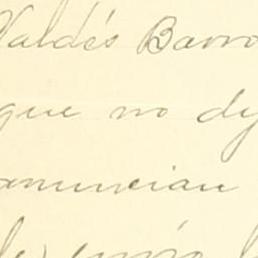 Valdés Barro
que no dej
anuncian